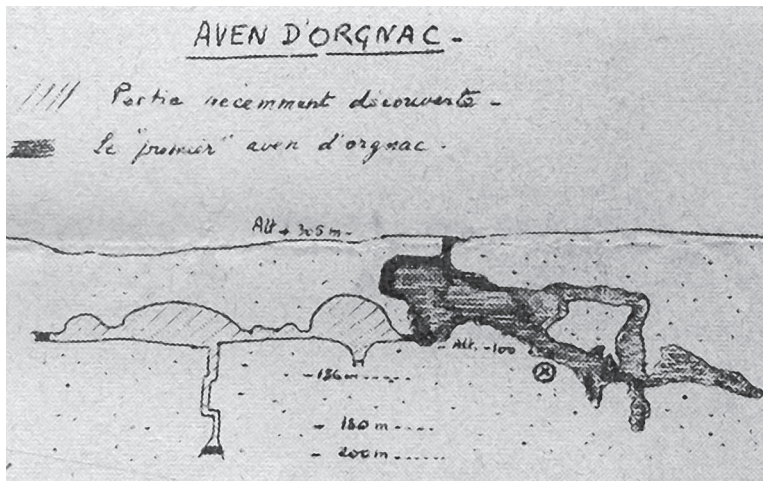 AVEN D'ORGNAC -
Partie récemment découverte -
Le "premier" aven d'orgnac .
Alt + 305 m -
- Alt. -100
- 180 m ....
- 200 m ....